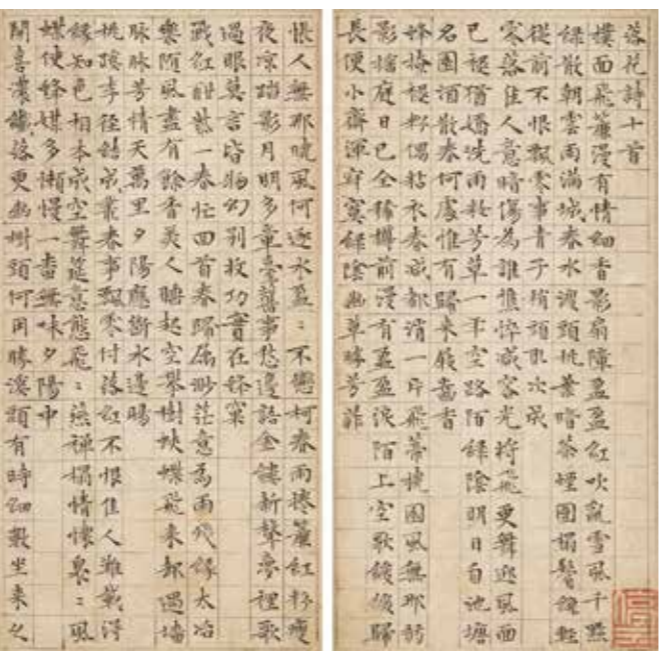 落花詩十首
撲面飛簾漫有情細香影扇障盈盈紅吹亂雪風千點
綠散朝雲雨滿城春水渡頭桃葉暗茶煙團榻鬢絲輕
從前不恨飄零事青子梢頭取次成
零落佳人意暗傷為誰憔悴減容光將飛更舞迎風面
已褪猶嬌洗雨妝芳草一年空路陌綠陰明日自池塘
名園酒散春何處惟有歸來屐齒香
蜂撩褪粉偶粘衣春減都消一片飛蒂撓園風無那弱
影搖庭日已全稀樽前漫有盈盈淚陌上空歌緩緩歸
長便小齋渾寂寞綠陰幽草勝芳菲
悵人無那曉風何逐水盈盈不戀柯春雨捲簾紅粉瘦
夜凉踏影月明多章臺舊事愁邊語金縷新聲夢裡歌
過眼莫言皆物幻別收功實在蜂窠
戰紅酣紫一春忙回首春歸屬渺茫意為雨殘緣太冶
樂隨風盡有餘香美人睡起空攀樹蛺蝶飛來卻過墻
脉脉芳情天萬里夕陽應斷水邊腸
桃蹊李徑綠成叢春事飄零付落紅不恨佳人難載得
緣知色相本成空舞筵意態飛飛燕禪榻情懷裊裊風
蝶使蜂媒多懶慢一番無味夕陽中
開喜濃纖落更幽樹頭何用勝溪頭有時細數坐來久